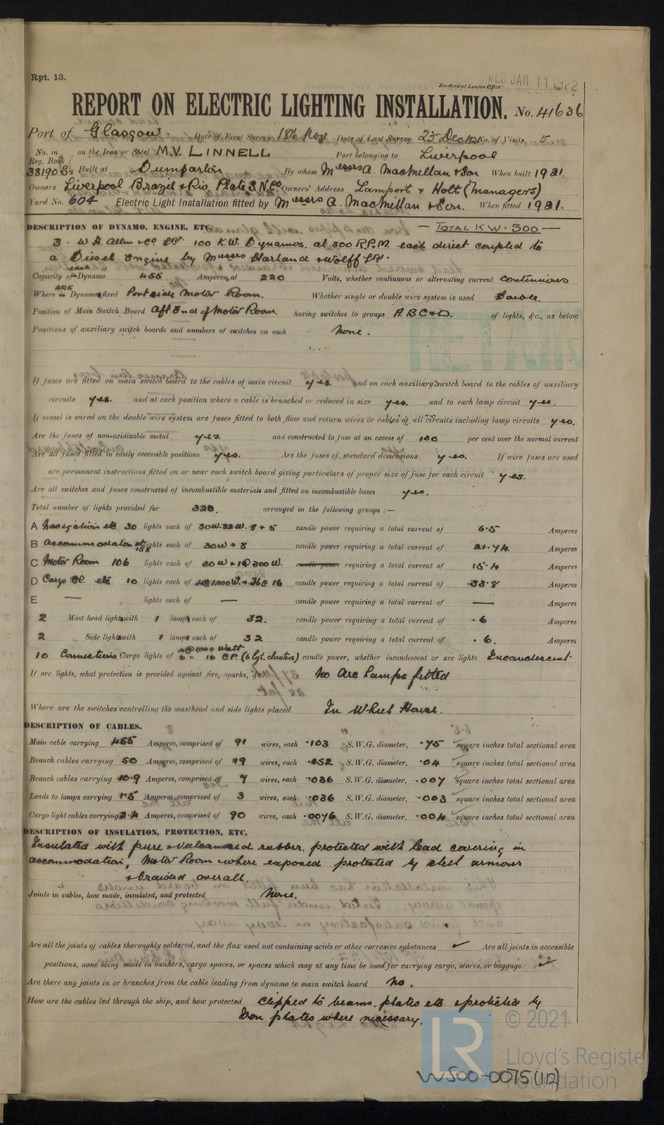 Rpt. 13.
WED JAN 11 1922
Received at London Office
REPORT ON ELECTRIC LIGHTING INSTALLATION. No. 41636
Port of Glasgow Date of First Survey 18th Nov Date of Last Survey 23 Dec No. of Visits 5
No. in on the Iron or Steel M.V. LINNELL Port belonging to Liverpool
Reg. Book
38190 S Built at Dumbarton By whom Messrs A. MacMillan & Son When built 1921.
Owners Liverpool Brazil & Rio Plate S N Co Owners' Address Lamport & Holt (Managers)
Yard No. 604 Electric Light Installation fitted by Messrs A. MacMillan & Son. When fitted 1921.
DESCRIPTION OF DYNAMO, ENGINE, ETC. — TOTAL KW: 300 —
3. W H Allen & Co Ltd 100 K.W. Dynamos, at 300 R.P.M. each direct coupled to
a Diesel Engine by Messrs Harland & Wolff Ltd.
Capacity of each Dynamo 455 Amperes at 220 Volts, whether continuous or alternating current continuous
Where are Dynamos fixed Port side Motor Room. Whether single or double wire system is used Double.
Position of Main Switch Board Aft End of Motor Room. having switches to groups A B C & D. of lights, &c., as below
Positions of auxiliary switch boards and numbers of switches on each None.
If fuses are fitted on main switch board to the cables of main circuit yes and on each auxiliary switch board to the cables of auxiliary
circuits yes and at each position where a cable is branched or reduced in size yes. and to each lamp circuit yes.
If vessel is wired on the double wire system are fuses fitted to both flow and return wires or cables of all circuits including lamp circuits yes.
Are the fuses of non-oxidizable metal yes and constructed to fuse at an excess of 100 per cent over the normal current
Are all fuses fitted in easily accessible positions yes. Are the fuses of standard dimensions yes. If wire fuses are used
are permanent instructions fitted on or near each switch board giving particulars of proper size of fuse for each circuit yes.
Are all switches and fuses constructed of incombustible materials and fitted on incombustible bases yes.
Total number of lights provided for 328. arranged in the following groups :—
A Navigation etc 30 lights each of 30W. 32W. 8 & 5 candle power requiring a total current of 6.5 Amperes
B Accommodation etc 158 lights each of 30W & 8 candle power requiring a total current of 21.74 Amperes
C Motor Room 106 lights each of 30W & 1@300W. candle power requiring a total current of 15.4 Amperes
D Cargo Cl. etc 10 lights each of 4@1000W. & 36@16 candle power requiring a total current of 33.8 Amperes
E — lights each of — candle power requiring a total current of — Amperes
2 Mast head light with 1 lamp each of 32. candle power requiring a total current of .6 Amperes
2 Side light with 1 lamp each of 32 candle power requiring a total current of .6. Amperes
10 Connections Cargo lights of 4@1000 Watt 6 - 16 C.P. (6 lgt. clusters) candle power, whether incandescent or arc lights Incandescent
If arc lights, what protection is provided against fire, sparks, &c. No Arc Lamps fitted
Where are the switches controlling the masthead and side lights placed In Wheel House.
DESCRIPTION OF CABLES.
Main cable carrying 455 Amperes, comprised of 91 wires, each .103 S.W.G. diameter, .75 square inches total sectional area
Branch cables carrying 50 Amperes, comprised of 19 wires, each .052 S.W.G. diameter, .04 square inches total sectional area
Branch cables carrying 10.9 Amperes, comprised of 7 wires, each .036 S.W.G. diameter, .007 square inches total sectional area
Leads to lamps carrying 1.5 Amperes, comprised of 3 wires, each .036 S.W.G. diameter, .003 square inches total sectional area
Cargo light cables carrying 24 Amperes, comprised of 90 wires, each .0076 S.W.G. diameter, .004 square inches total sectional area
DESCRIPTION OF INSULATION, PROTECTION, ETC.
Insulated with pure & vulcanised rubber. protected with lead covering in
accommodation, Motor Room & where exposed protected by steel armour
& braided overall.
Joints in cables, how made, insulated, and protected None.
Are all the joints of cables thoroughly soldered, and the flux used not containing acids or other corrosive substances ✓ Are all joints in accessible
positions, none being made in bunkers, cargo spaces, or spaces which may at any time be used for carrying cargo, stores, or baggage ✓
Are there any joints in or branches from the cable leading from dynamo to main switch board No.
How are the cables led through the ship, and how protected Clipped to beams. plates etc & protected by
Iron plates where necessary.
LR
© 2021
Lloyd's Register
Foundation
W500-0075(1/2)